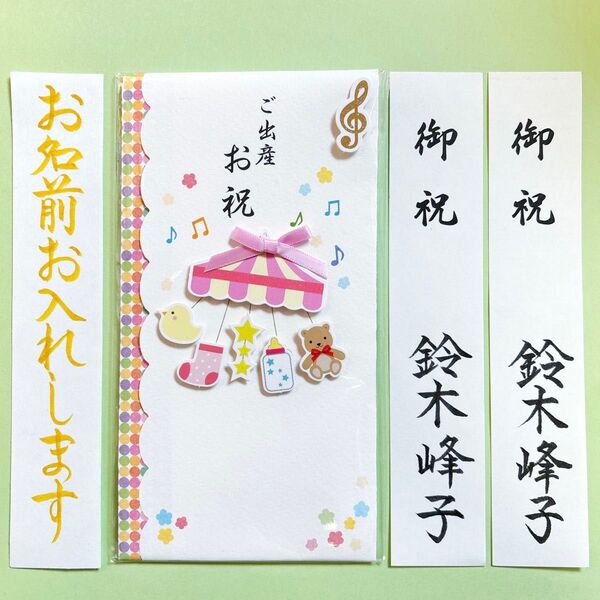 お名前お入れします
ご出産
お祝
御祝
鈴木峰子
御祝
鈴木峰子